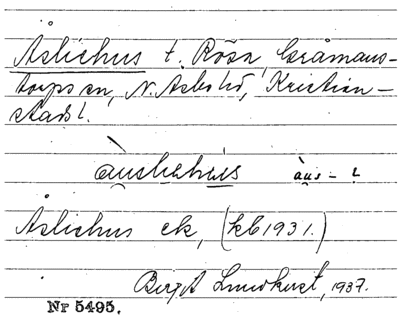 Åslichus t. Rösa, Gråmans-
torps sn, N. Åsbo hd, Kristian-
stads l.
àuslichuis àus- l
Åslichus ek, (kb 1931.)
Birgit Lundkvist, 1937.
Nr 5495.